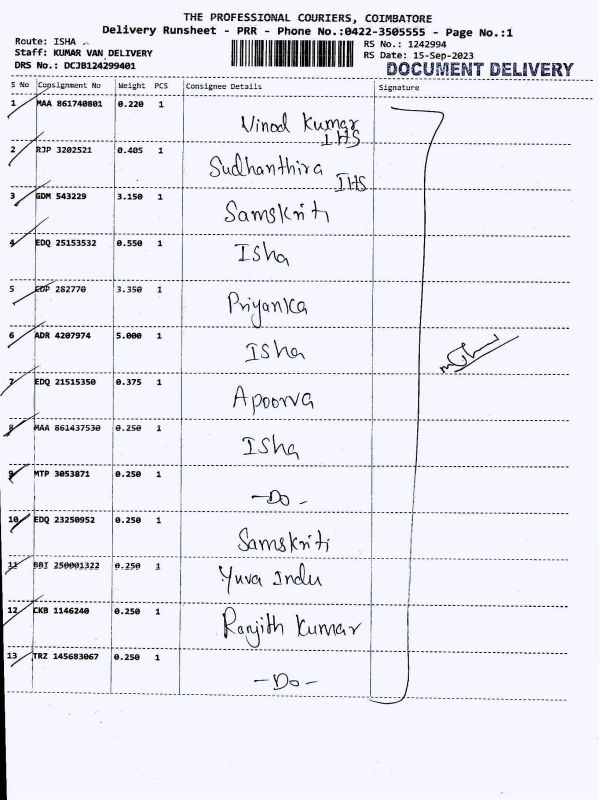 THE PROFESSIONAL COURIERS, COIMBATORE
Delivery Runsheet - PRR - Phone No.:0422-3505555 - Page No.:1
Route: ISHA
Staff: KUMAR VAN DELIVERY
DRS No.: DCJB124299401
RS No.: 1242994
RS Date: 15-Sep-2023
DOCUMENT DELIVERY
S No Consignment No Weight PCS Consignee Details Signature
1 MAA 861740801 0.220 1
Vinod Kumar
IHS
2 RJP 3202521 0.405 1
Sudhanthira
IHS
3 GDM 543229 3.150 1
Samskriti
4 EDQ 25153532 0.550 1
Isha
5 EDP 282770 3.350 1
Priyanka
6 ADR 4207974 5.000 1
Isha
7 EDQ 21515350 0.375 1
Apoorva
8 MAA 861437530 0.250 1
Isha
9 MTP 3053871 0.250 1
-Do-
10 EDQ 23250952 0.250 1
Samskriti
11 BBI 250001322 0.250 1
Yuva Indu
12 CKB 1146240 0.250 1
Ranjith Kumar
13 TRZ 145683067 0.250 1
-Do-